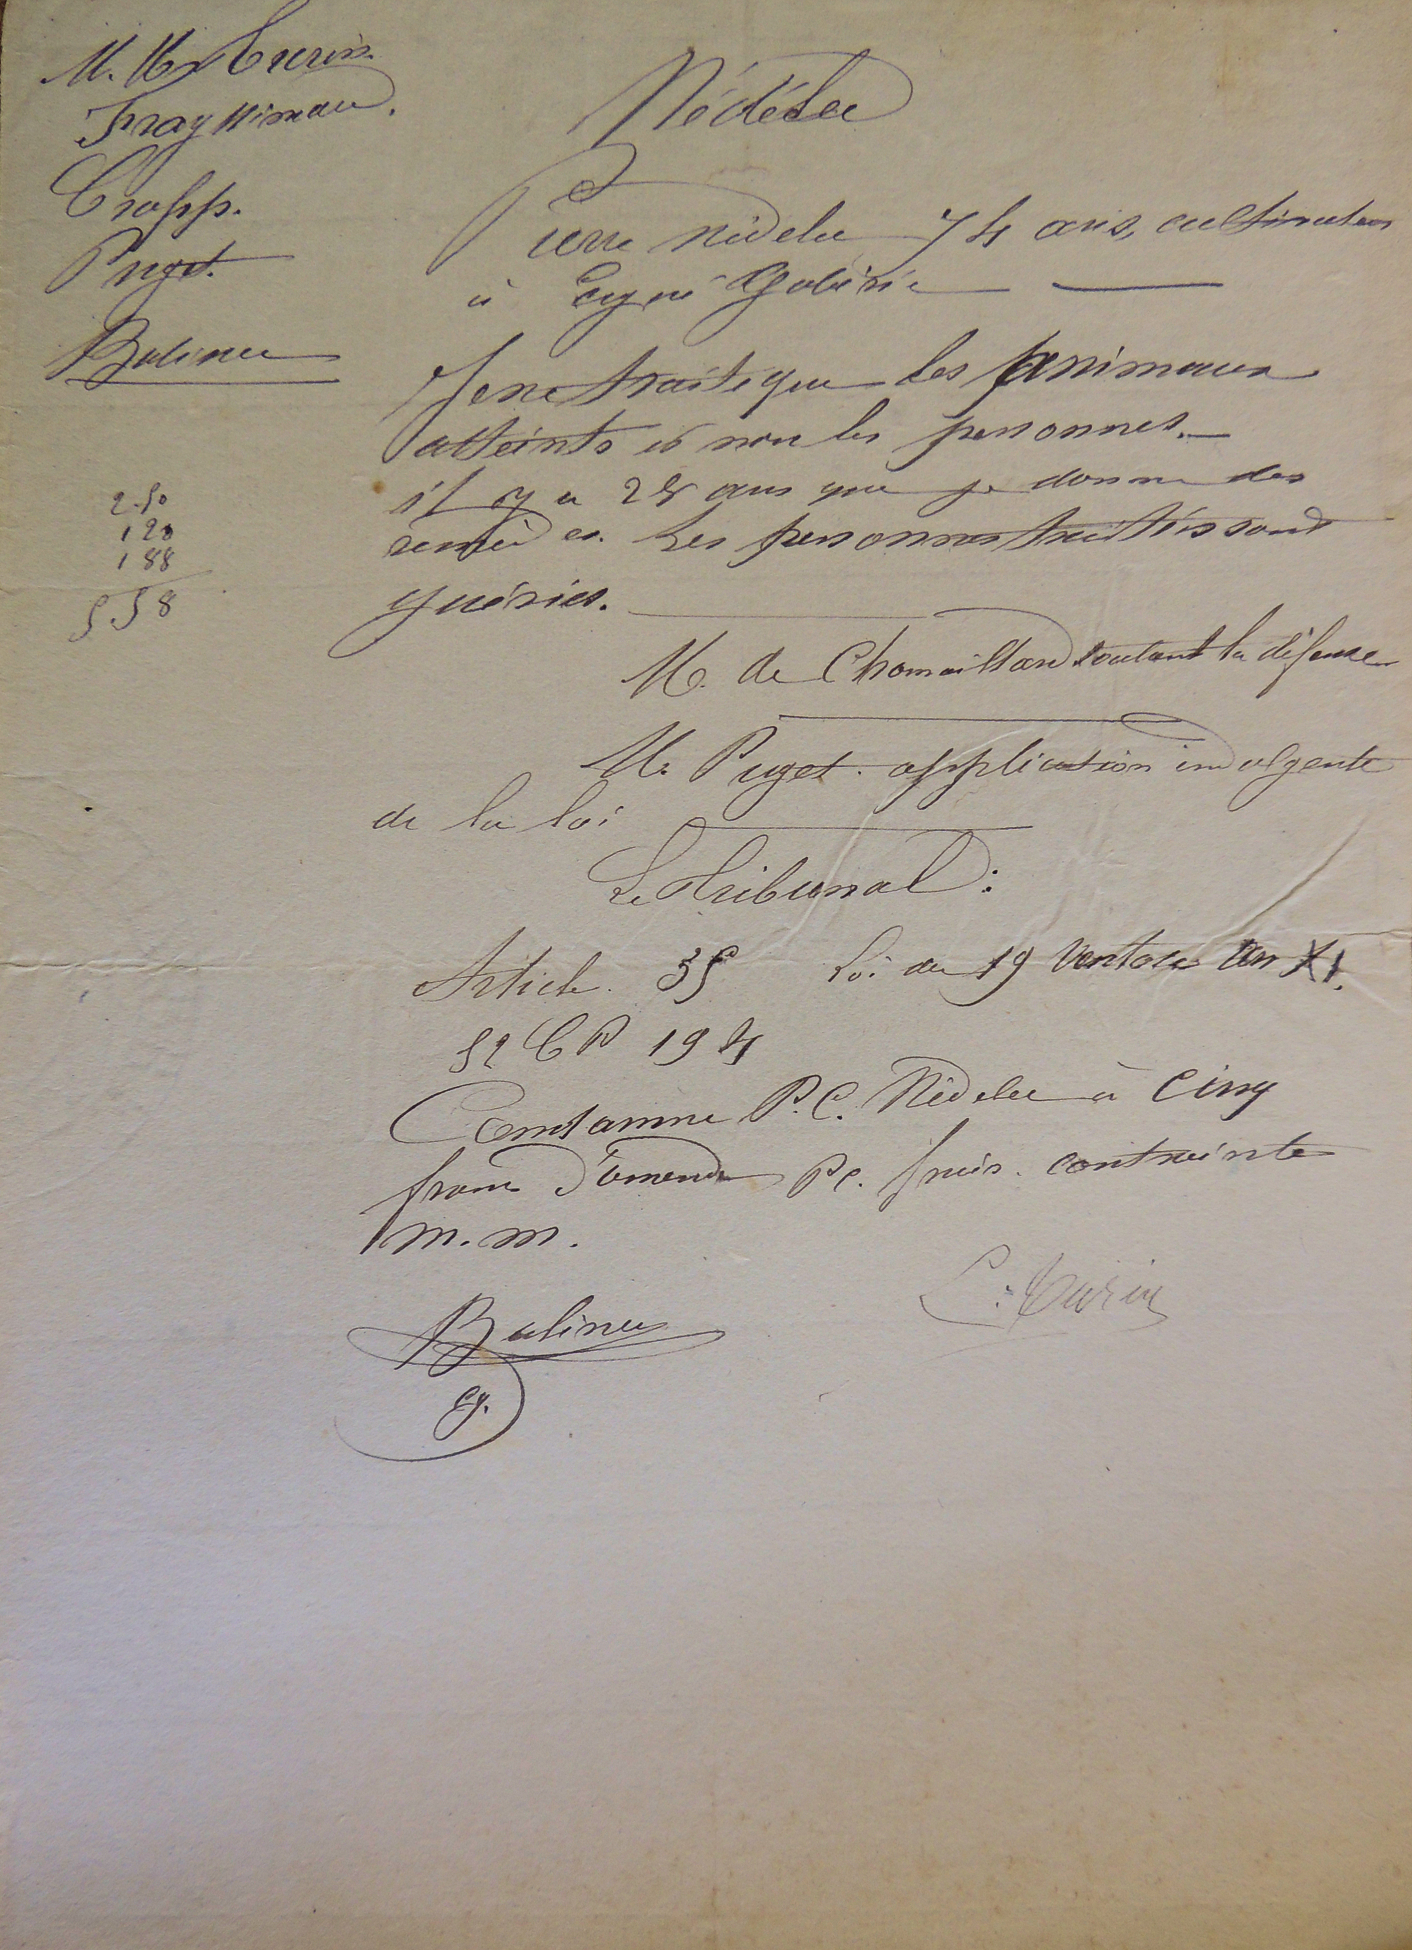 M. M. Turin
Frayssinaud.
Cropp.
Puget.
Balinec
2.50
1 20
1 88
5.58
Nédélec
Pierre Nédelec 74 ans, cultivateur
à Ergué Gabéric
Je ne traite que les animaux
atteints et non les personnes.
il y a 25 ans que je donne des
remèdes. Les personnes traitées sont
guéries.
M. de Chamaillard soutient la défense
M. Puget. application indulgente
de la loi
Le Tribunal :
Article. 35 loi du 19 Ventose An XI.
52 C P 194
Condamne P. C. Nédelec à cinq
francs d'amende P C. frais. contrainte
m. m.
Balinec
g.
L. Turin